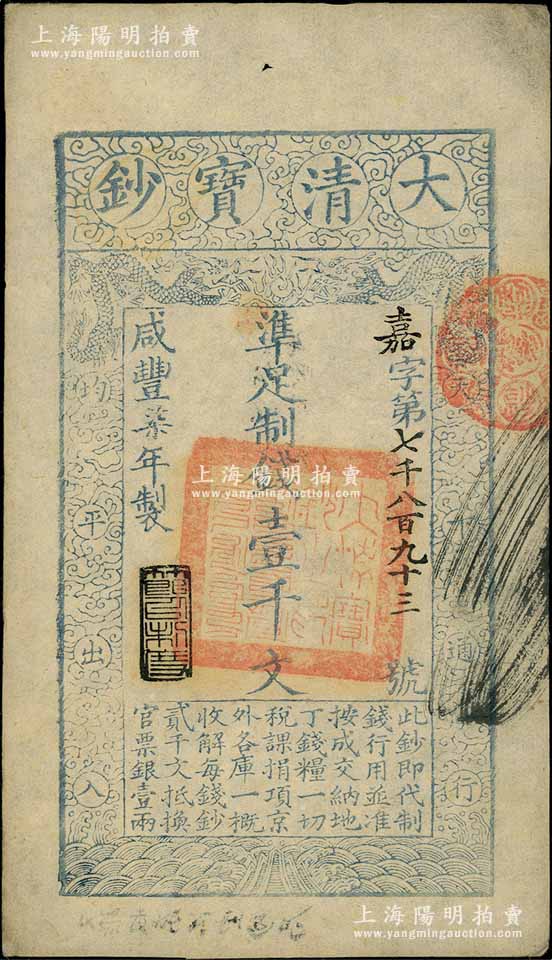 上海陽明拍賣
www.yangmingauction.com
大清寶鈔
嘉字第七千八百九十三號
準足制錢壹千文
咸豐柒年製
通行
均平出入
此鈔即代制
錢行用並准
按成交納地
丁錢糧一切
稅課捐項京
外各庫一概
收解每錢鈔
貳千文抵換
官票銀壹兩
上海陽明拍賣
www.yangmingauction.com
上海陽明拍賣
www.yangmingauction.com